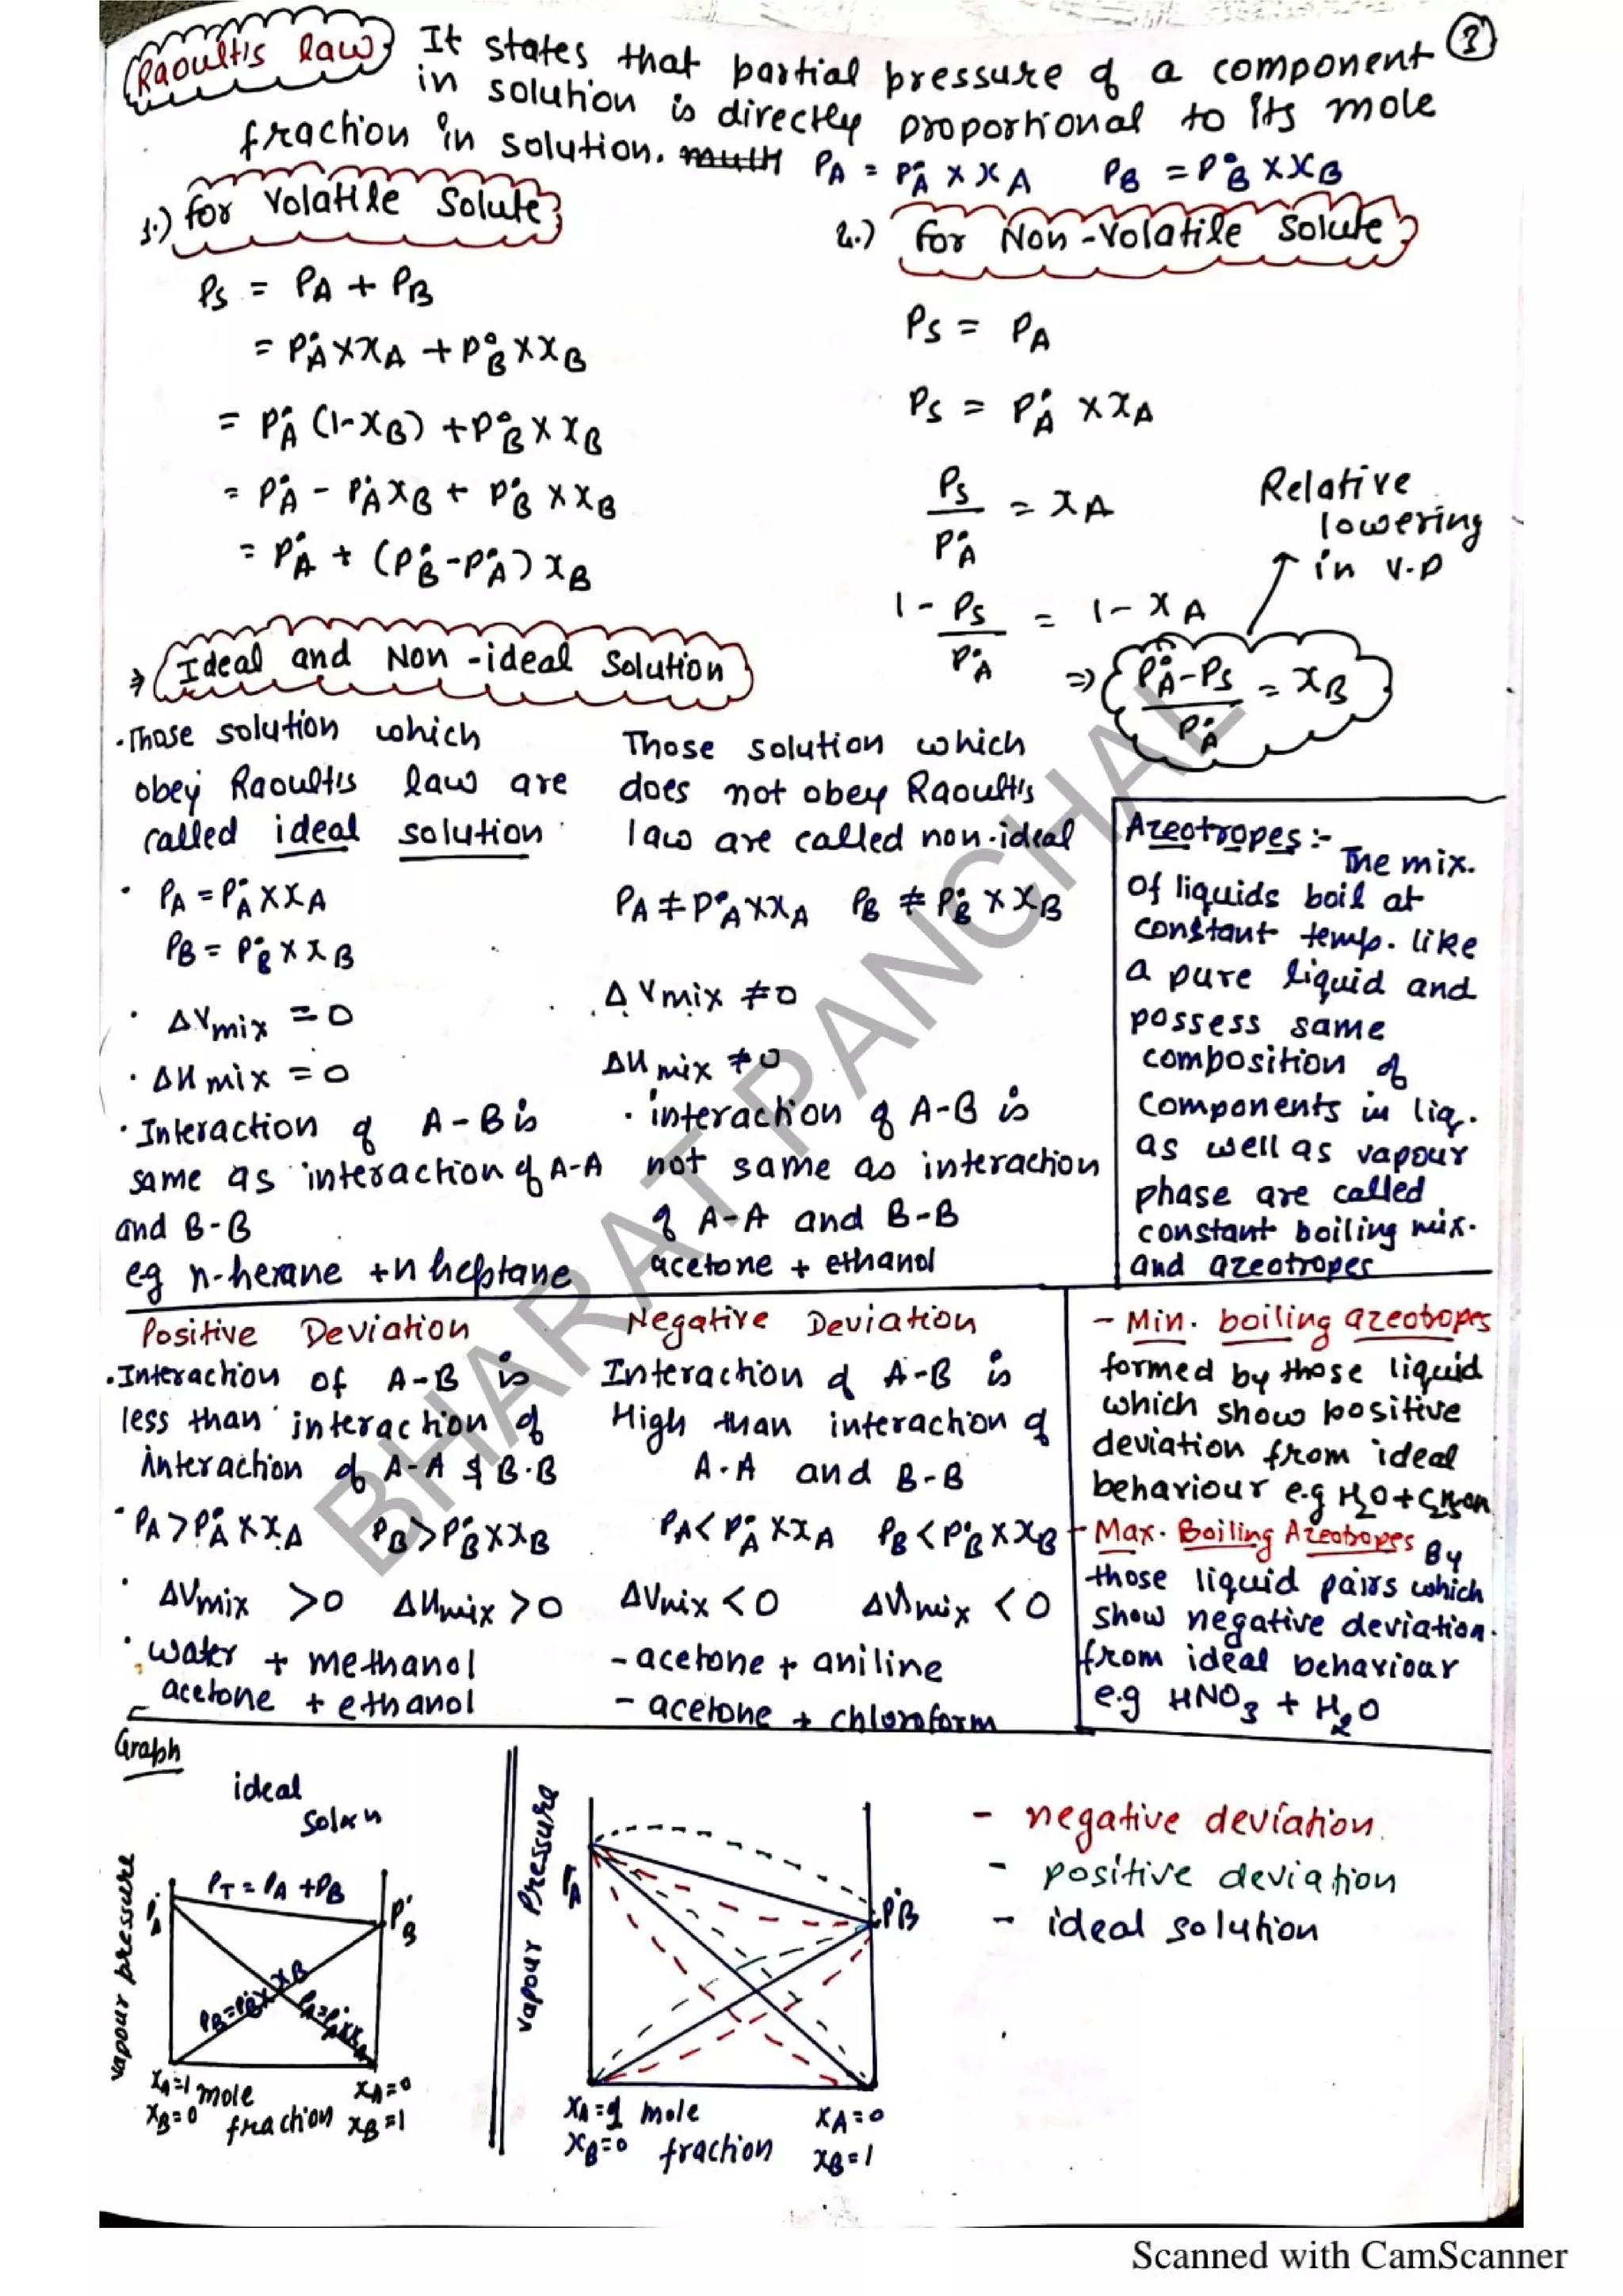 Raoult's law It states that partial pressure of a component ③
in solution is directly proportional to its mole
fraction in solution. PA = P°A × xA PB = P°B × xB
1.) for Volatile Solute
Ps = PA + PB
= P°A × xA + P°B × xB
= P°A (1-xB) + P°B × xB
= P°A - P°A xB + P°B × xB
= P°A + (P°B - P°A) xB
2.) for Non-Volatile Solute
Ps = PA
Ps = P°A × xA
Ps / P°A = xA
1 - Ps / P°A = 1 - xA
=> P°A - Ps / P°A = xB
Relative
lowering
in V.P
⇒ Ideal and Non-ideal Solution
· Those solution which
obey Raoult's law are
called ideal solution
· PA = P°A × xA
PB = P°B × xB
· ΔVmix = 0
· ΔHmix = 0
· Interaction of A-B is
same as interaction of A-A
and B-B
eg n-hexane + n heptane
Those solution which
does not obey Raoult's
law are called non-ideal
PA ≠ P°A × xA PB ≠ P°B × xB
ΔVmix ≠ 0
ΔHmix ≠ 0
· interaction of A-B is
not same as interaction
of A-A and B-B
acetone + ethanol
Azeotropes :- The mix.
of liquids boil at
constant temp. like
a pure liquid and
possess same
composition of
components in liq.
as well as vapour
phase are called
constant boiling mix.
and azeotropes
Positive Deviation
· Interaction of A-B is
less than interaction of
interaction of A-A & B-B
· PA > P°A × xA PB > P°B × xB
· ΔVmix > 0 ΔHmix > 0
· water + methanol
acetone + ethanol
Negative Deviation
Interaction of A-B is
High than interaction of
A-A and B-B
PA < P°A × xA PB < P°B × xB
ΔVmix < 0 ΔHmix < 0
- acetone + aniline
- acetone + chloroform
- Min. boiling azeotropes
formed by those liquid
which show positive
deviation from ideal
behaviour e.g H2O +
- Max. Boiling Azeotropes By
those liquid pairs which
show negative deviation
from ideal behaviour
e.g HNO3 + H2O
Graph
ideal
solxn
vapour pressure
P°A
PT = PA + PB
P°B
PB = P°B × xB
PA = P°A × xA
xA=1 mole xA=0
xB=0 fraction xB=1
vapour Pressure
P°A
P°B
xA=1 mole xA=0
xB=0 fraction xB=1
- negative deviation.
- positive deviation
- ideal solution
BHARAT PANCHAL
Scanned with CamScanner